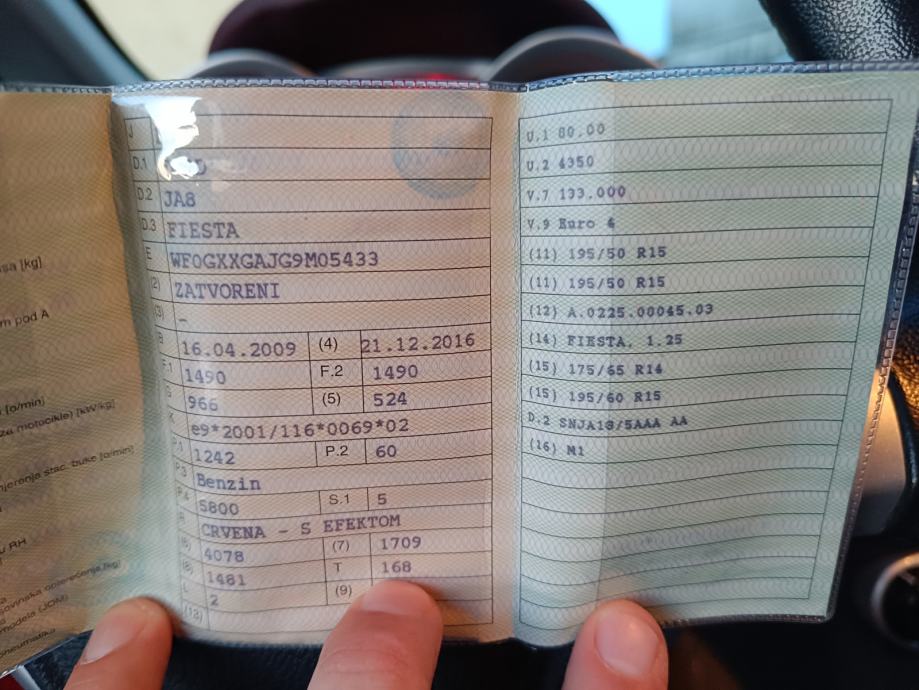 sa [kg]
m pod A
[o/min]
za motocikle) [kW/kg]
mjerenja stac. buke [o/min]
u RH
J
D.1
D.2 JA8
D.3 FIESTA
E WF0GXXGAJG9M05433
(2) ZATVORENI
(3) -
B 16.04.2009 (4) 21.12.2016
F.1 1490 F.2 1490
G 966 (5) 524
K e9*2001/116*0069*02
P.1 1242 P.2 60
P.3 Benzin
P.4 5800 S.1 5
R CRVENA - S EFEKTOM
(6) 4078 (7) 1709
(8) 1481 T 168
L 2 (9)
(13)
U.1 80.00
U.2 4350
V.7 133.000
V.9 Euro 4
(11) 195/50 R15
(11) 195/50 R15
(12) A.0225.00045.03
(14) FIESTA, 1.25
(15) 175/65 R14
(15) 195/60 R15
D.2 SNJA18/5AAA AA
(16) M1